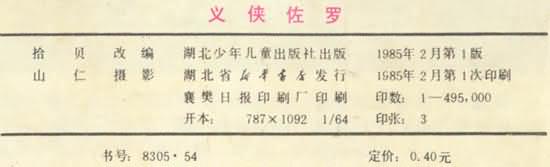 义侠佐罗
拾贝改编 湖北少年儿童出版社出版 1985年2月第1版
山仁摄影 湖北省新华书店发行 1985年2月第1次印刷
襄樊日报印刷厂印刷 印数：1—495,000
开本： 787×1092 1/64 印张：3
书号：8305·54 定价：0.40元